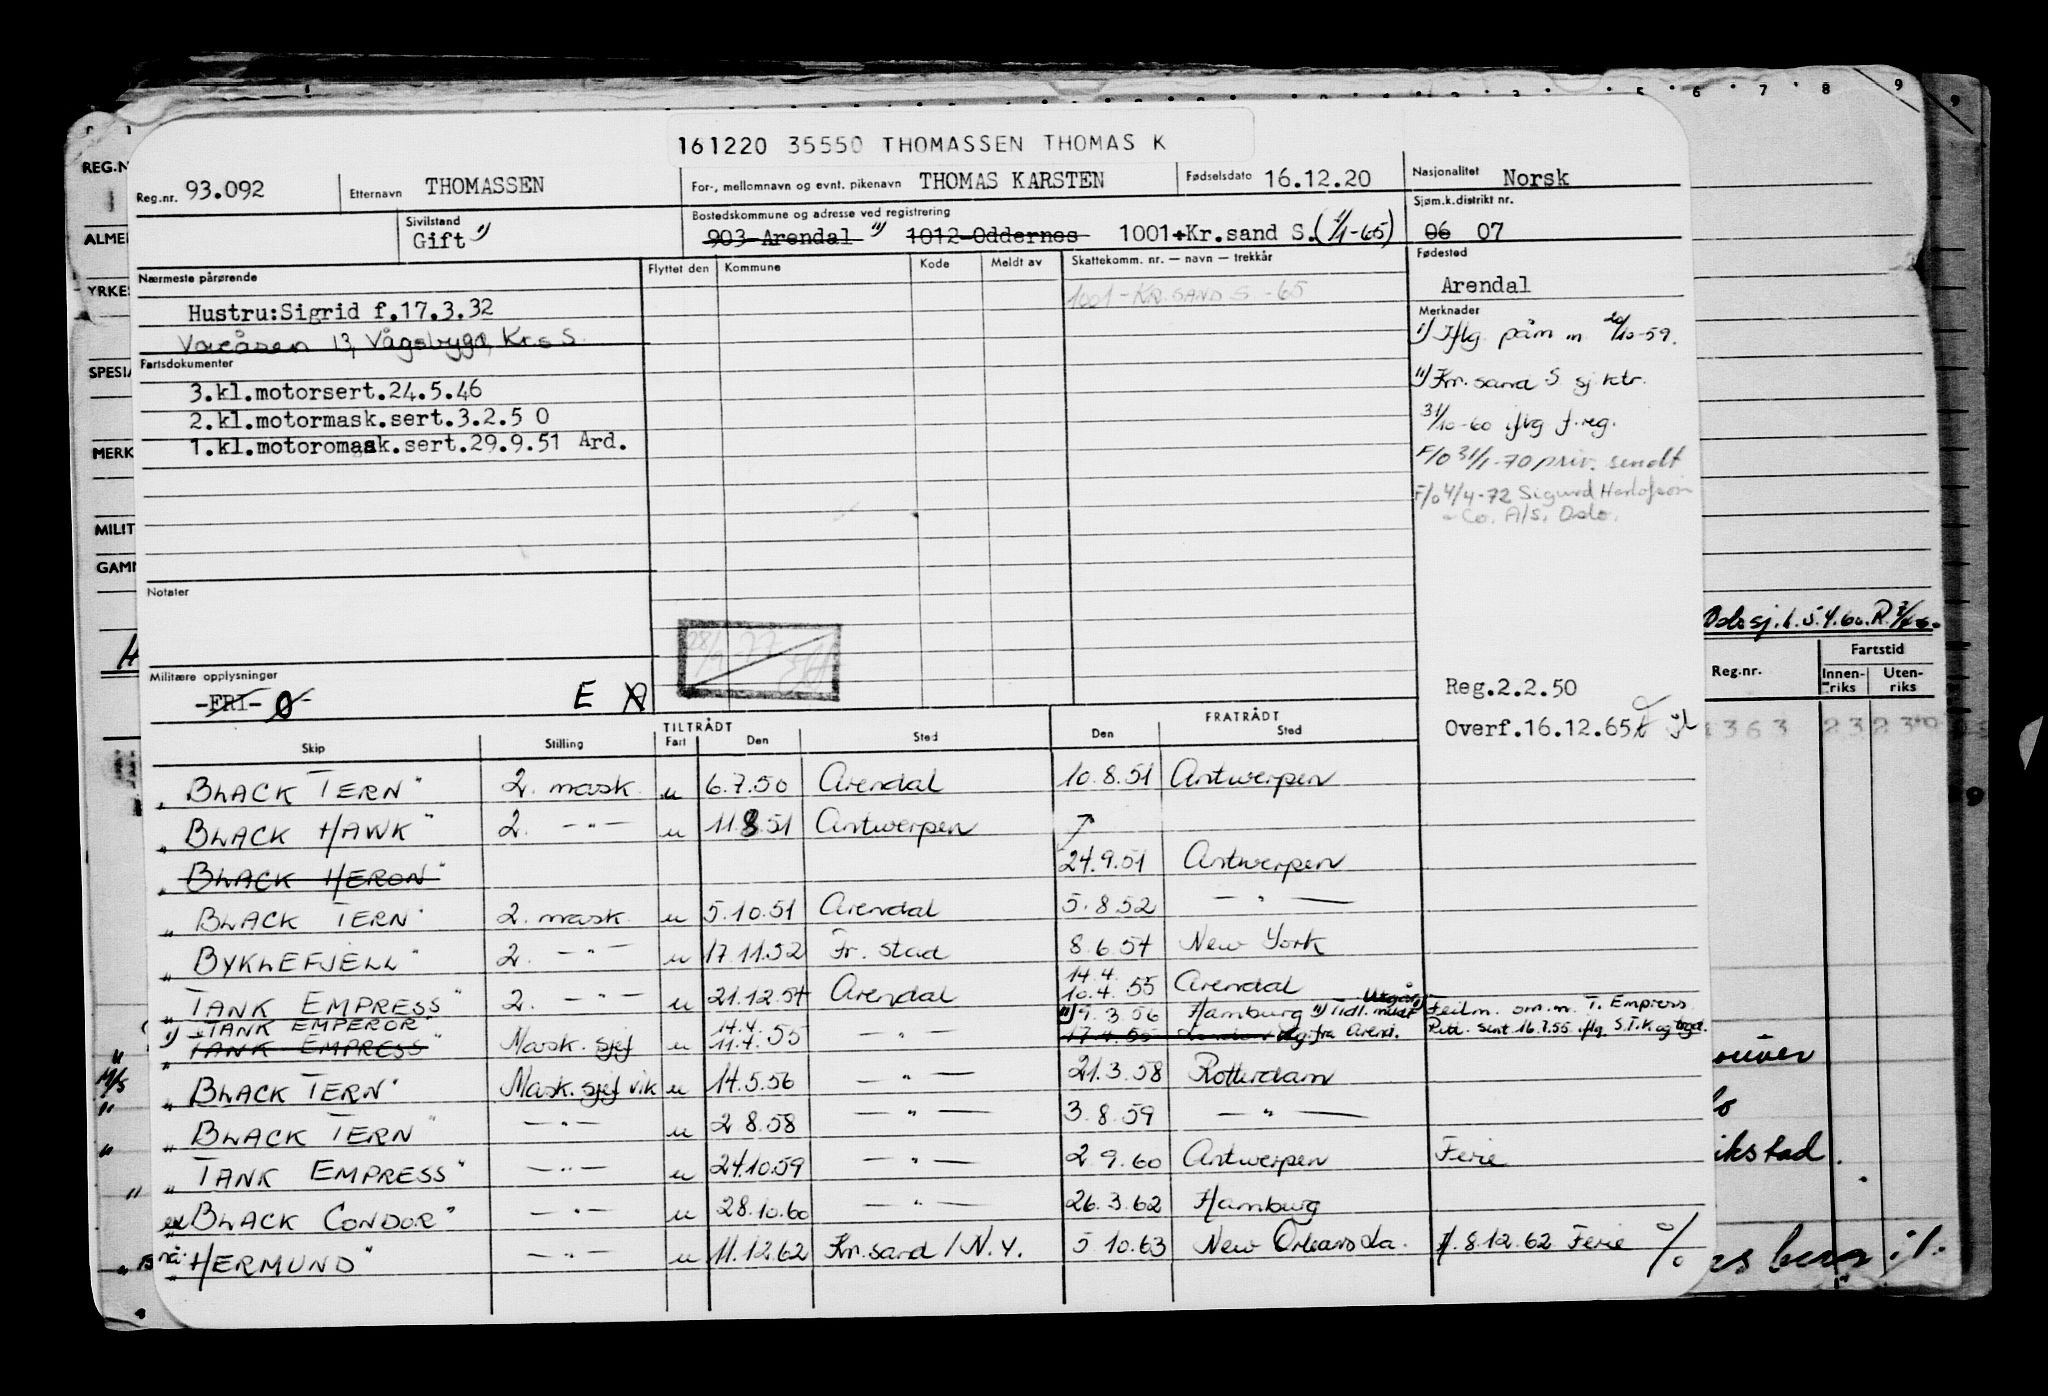 161220 35550 THOMASSEN THOMAS K
Reg.nr. 93.092 Etternavn THOMASSEN For-, mellomnavn og evnt. pikenavn THOMAS KARSTEN Fødselsdato 16.12.20 Nasjonalitet Norsk
Sivilstand Gift 1) Bostedskommune og adresse ved registrering 903-Arendal 11) 1012-Oddernes 1001+Kr.sand S.(1/1-65) Sjøm.k.distrikt nr. 06 07
Nærmeste pårørende Flyttet den Kommune Kode Meldt av Skattekomm. nr. — navn — trekkår Fødested
1001-KR.SAND S -65 Arendal
Hustru:Sigrid f.17.3.32 Merknader
Voieåsen 13, Vågsbygd, Kr.s S. 1) Iflg påm m 20/10-59.
Fartsdokumenter
3.kl.motorsert.24.5.46 11) Kr.sand S sj.ktr.
2.kl.motormask.sert.3.2.5 0 31/10-60 iflg f.reg.
1.kl.motoromask.sert.29.9.51 Ard.
F/O 31/1-70 priv. sendt
F/O 4/4-72 Sigurd Herlofson
& Co. A/S, Oslo.
Notater
28/9 77
Militære opplysninger
-FRI- Ø E A
Reg.2.2.50
Overf.16.12.65
TILTRÅDT FRATRÅDT
Skip Stilling Fart Den Sted Den Sted
"BLACK TERN" 2. mask. u 6.7.50 Arendal 10.8.51 Antwerpen
"BLACK HAWK" 2. —"— u 11.8.51 Antwerpen
"BLACK HERON" 24.9.51 Antwerpen
"BLACK TERN" 2. mask. u 5.10.51 Arendal 5.8.52 —"—
"BYKLEFJELL" 2. —"— u 17.11.52 Fr. stad 8.6.54 New York
"TANK EMPRESS" 2. —"— u 21.12.54 Arendal 14.4. 10.4. 55 Arendal
1) "TANK EMPEROR" 11) 9.3.56 Hamburg 11) Tidl. Utgår 1) Feilm. om m. T. Empress
"TANK EMPRESS" Mask. sjef u 14.4. 11.4. 55 —"— 17.4.55 fra Arend. Sent 16.7.55 iflg. S.T.K og
"BLACK TERN" Mask. sjef vik u 14.5.56 —"— 21.3.58 Rotterdam
"BLACK TERN" —"— u 2 8.58 —"— 3.8.59 —"—
"TANK EMPRESS" —"— u 24.10.59 —"— 2.9.60 Antwerpen Ferie
ex "BLACK CONDOR" —"— u 28.10.60 —"— 26.3.62 Hamburg
nå: "HERMUND" —"— u 11.12.62 Kr.sand / N.Y. 5.10.63 New Orleans La. f. 8.12.62 Ferie %
REG.N
ALMEN
YRKES
SPESIA
MERK
MILIT
GAMM
6 7 8 9
Oslo sj. 6.5.4.60.
Reg.nr. Fartstid
Innen-riks Uten-riks